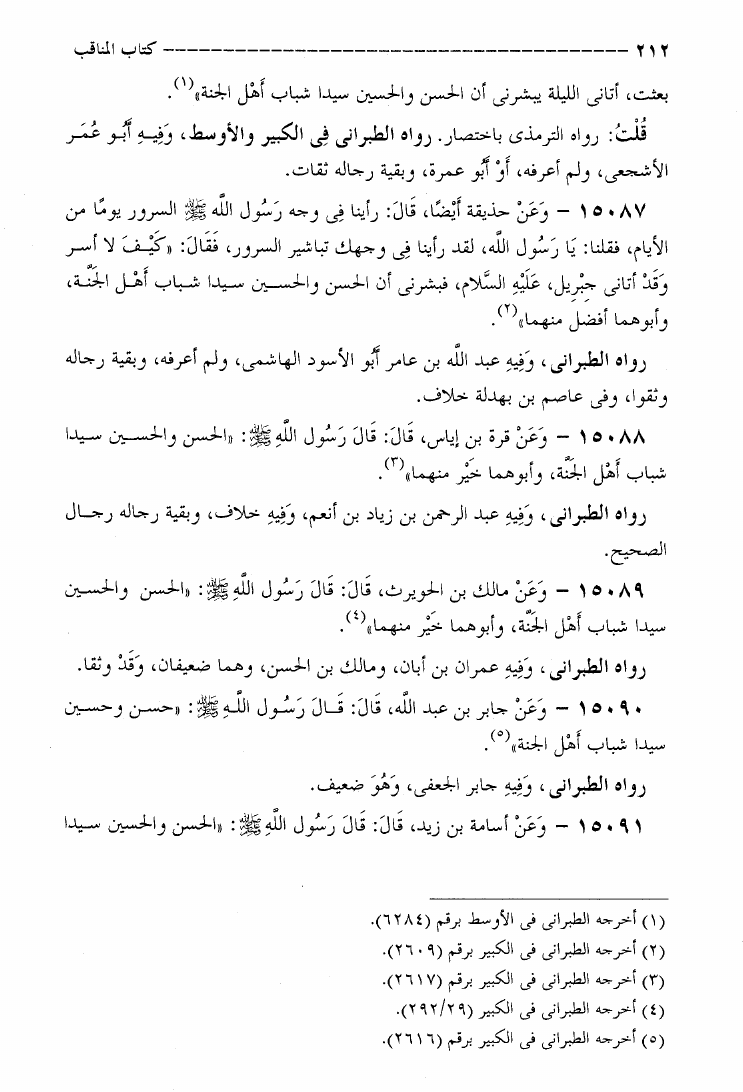 ٢١٢ ------------------------------------------ كتاب المناقب
بعثت، أتانى الليلة يبشرنى أن الحسن والحسين سيدا شباب أَهْل الجنة»(١).
قُلْتُ: رواه الترمذى باختصار. رواه الطبرانى فِى الكبير والأوسط، وَفِيهِ أَبُو عُمَر
الأشجعى، ولم أعرفه، أَوْ أَبُو عمرة، وبقية رجاله ثقات.
١٥٠٨٧ – وَعَنْ حذيقة أَيْضًا، قَالَ: رأينا فِى وجه رَسُول اللَّه ﷺ السرور يومًا من
الأيام، فقلنا: يَا رَسُول اللَّه، لقد رأينا فِى وجهك تباشير السرور، فَقَالَ: «كَيْفَ لا أسر
وَقَدْ أتانى جِبْرِيل، عَلَيْهِ السَّلَام، فبشرنى أن الحسن والحسين سيدا شباب أَهْل الجَنَّة،
وأبوهما أفضل منهما»(٢).
رواه الطبرانى، وَفِيهِ عبد اللَّه بن عامر أَبُو الأسود الهاشمى، ولم أعرفه، وبقية رجاله
وثقوا، وفى عاصم بن بهدلة خلاف.
١٥٠٨٨ – وَعَنْ قرة بن إياس، قَالَ: قَالَ رَسُول اللَّهِ ﷺ: «الحسن والحسين سيدا
شباب أَهْل الجَنَّة، وأبوهما خَيْر منهما»(٣).
رواه الطبرانى، وَفِيهِ عبد الرحمن بن زياد بن أنعم، وَفِيهِ خلاف، وبقية رجاله رجال
الصحيح.
١٥٠٨٩ – وَعَنْ مالك بن الحويرث، قَالَ: قَالَ رَسُول اللَّهِ ﷺ: «الحسن والحسين
سيدا شباب أَهْل الجَنَّة، وأبوهما خَيْر منهما»(٤).
رواه الطبرانى، وَفِيهِ عمران بن أبان، ومالك بن الحسن، وهما ضعيفان، وَقَدْ وثقا.
١٥٠٩٠ – وَعَنْ جابر بن عبد اللَّه، قَالَ: قَالَ رَسُول اللَّهِ ﷺ: «حسن وحسين
سيدا شباب أَهْل الجنة»(٥).
رواه الطبرانى، وَفِيهِ جابر الجعفى، وَهُوَ ضعيف.
١٥٠٩١ – وَعَنْ أسامة بن زيد، قَالَ: قَالَ رَسُول اللَّهِ ﷺ: «الحسن والحسين سيدا
(١) أخرجه الطبرانى فى الأوسط برقم (٦٢٨٤).
(٢) أخرجه الطبرانى فى الكبير برقم (٢٦٠٩).
(٣) أخرجه الطبرانى فى الكبير برقم (٢٦١٧).
(٤) أخرجه الطبرانى فى الكبير (٢٩٢/٢٩).
(٥) أخرجه الطبرانى فى الكبير برقم (٢٦١٦).